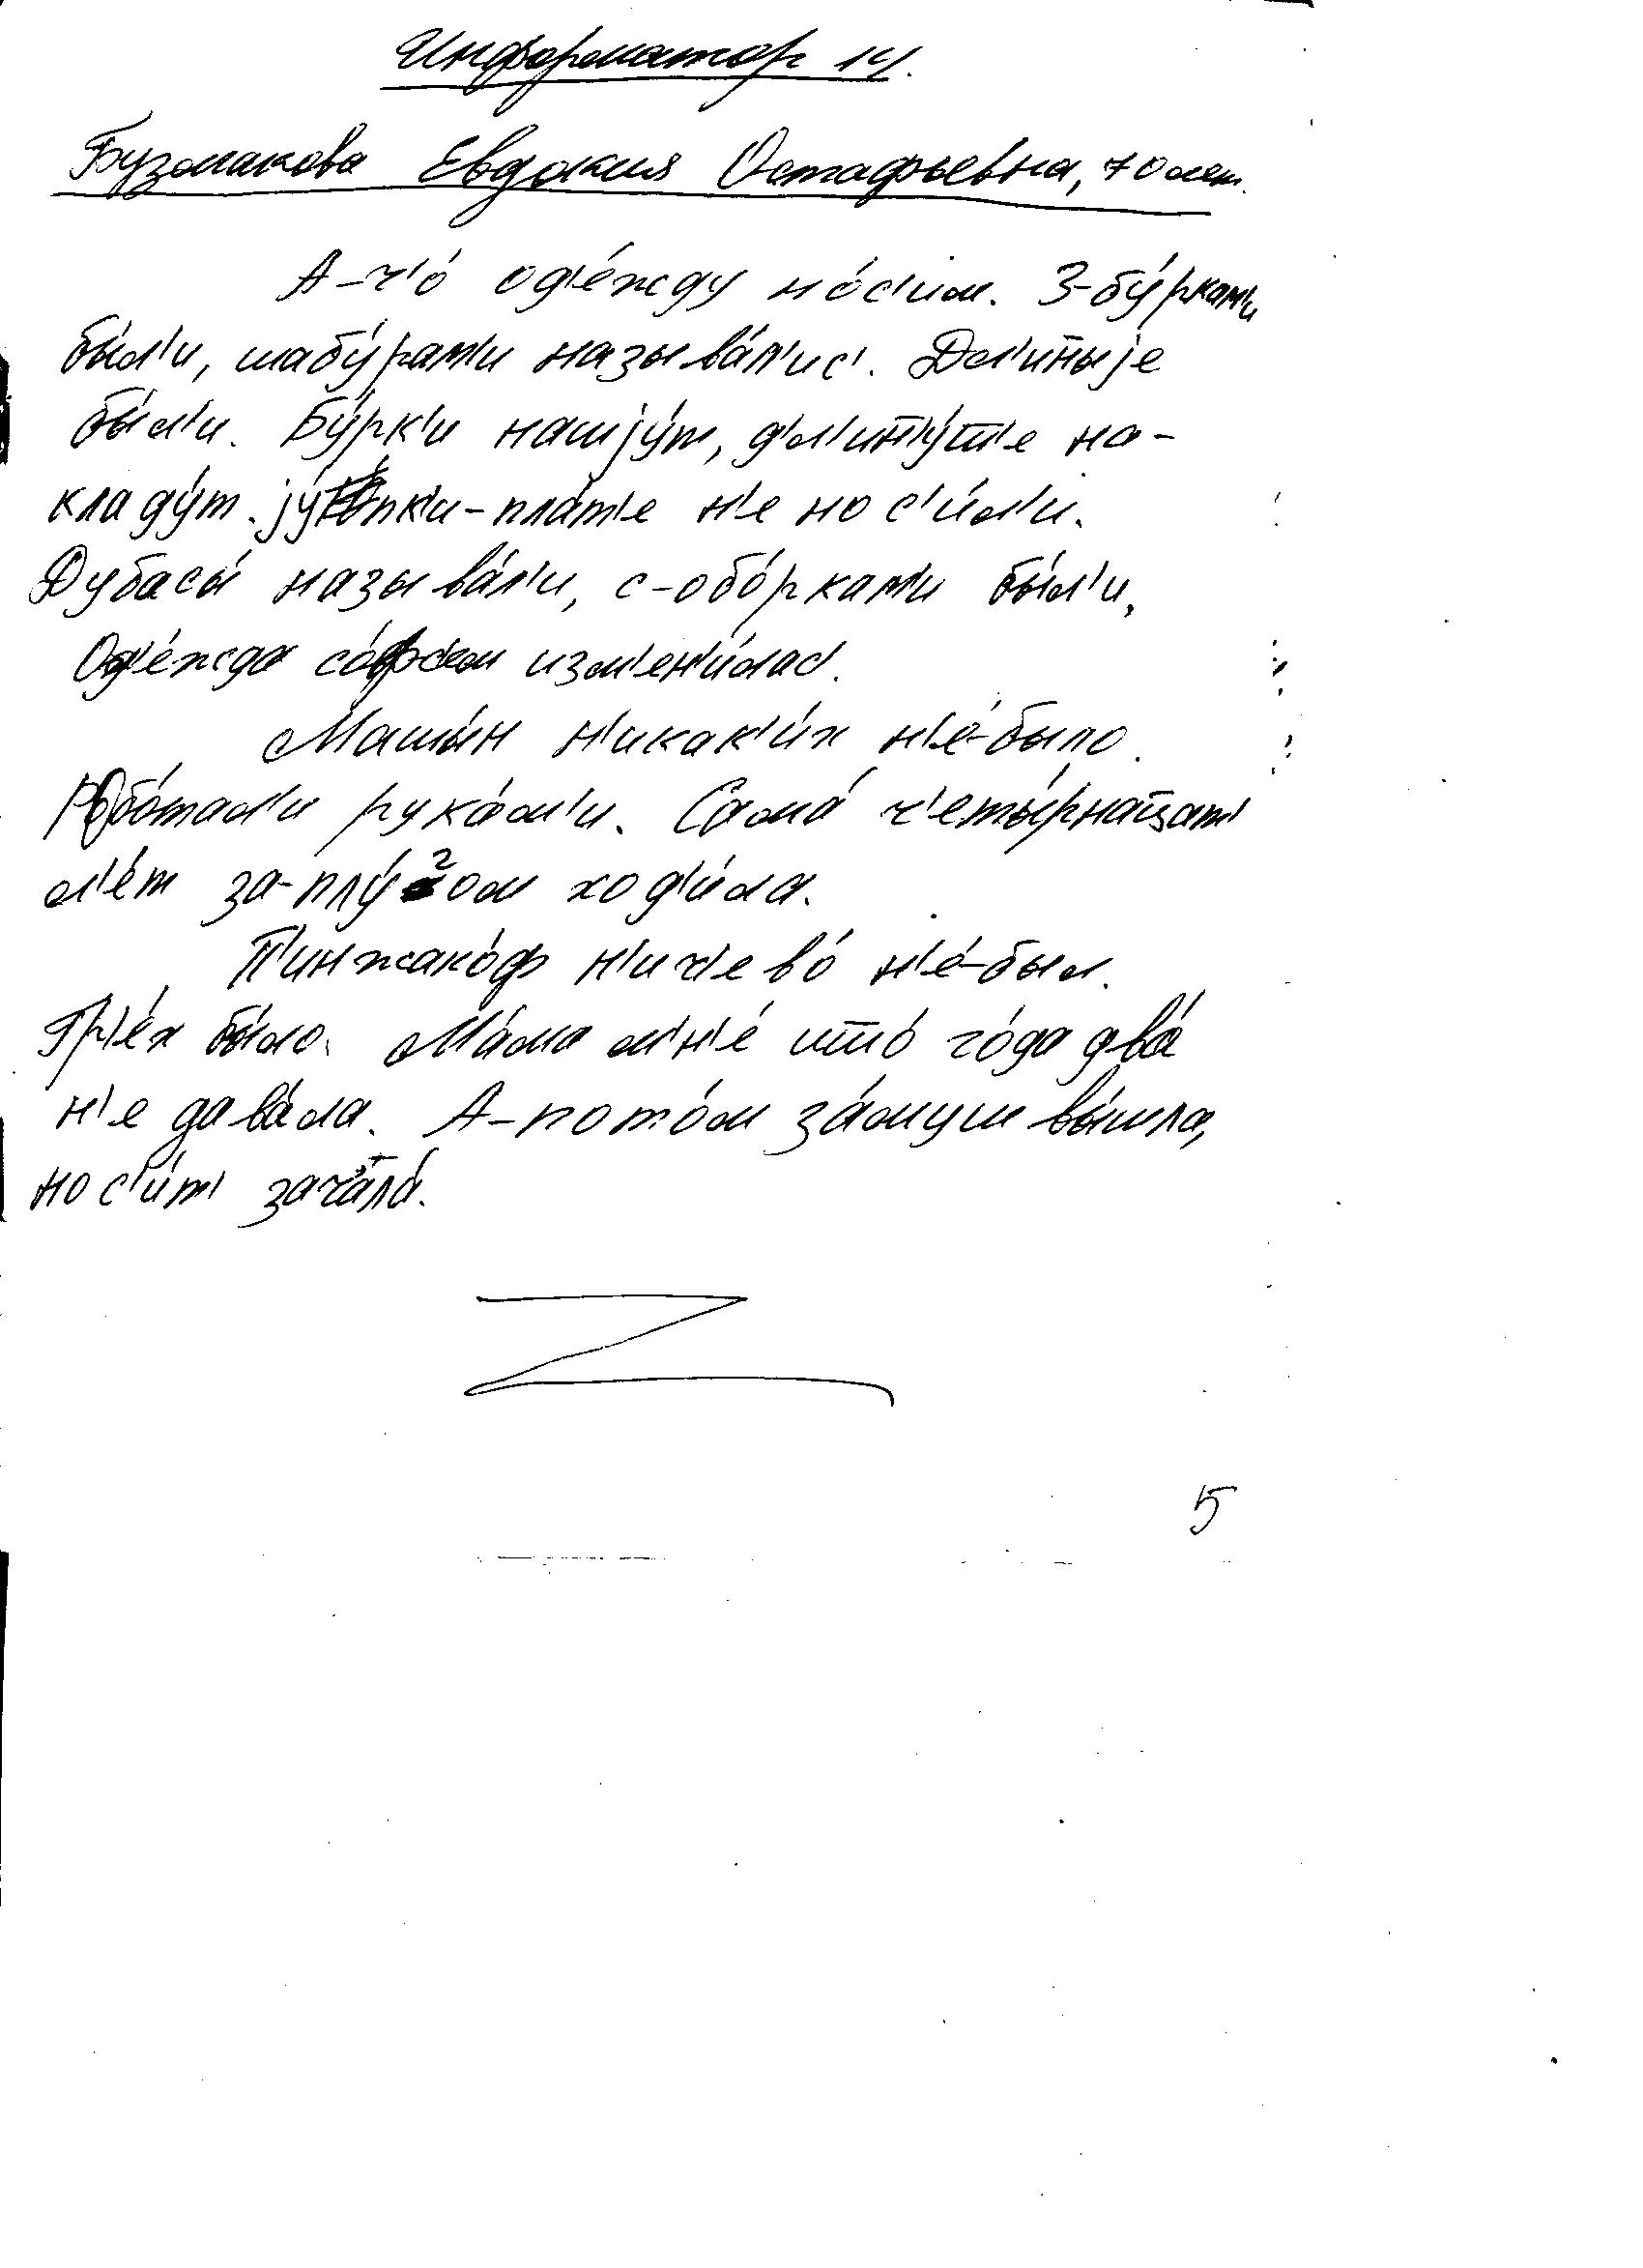 Информатор 14.
Бузмакова Евдокия Остафьевна, 70 лет.
А-ч'о́ од'е́жду но́с'им. З-бу́ркам'и
бы́л'и, шабу́рам'и называ́л'ис'. Дл'и́ныjе
бы́л'и. Бу́рк'и нашjу́т, д'л'ин̄у́шч'е на-
кладу́т. jу́пк'и-пла́т'е н'е нос'и́л'и.
Дубасы́ называ́л'и, с-обо́ркам'и бы́л'и,
Од'е́жда со́фс'ем изм'ен'и́лас'.
Машы́н н'икак'и́х н'е́-было.
Робо́тал'и рука́м'и. Сама́ ч'еты́рнац̄ат'
л'е́т за-плу́гом ход'и́ла.
П'инжако́ф н'ич'ево́ н'е́-был.
Гр'е́х бы́ло. Ма́ма м'н'е́ што́ го́да два́
н'е дава́ла. А-пото́м за́муш вы́шла,
нос'и́т' зач'ала́.
5